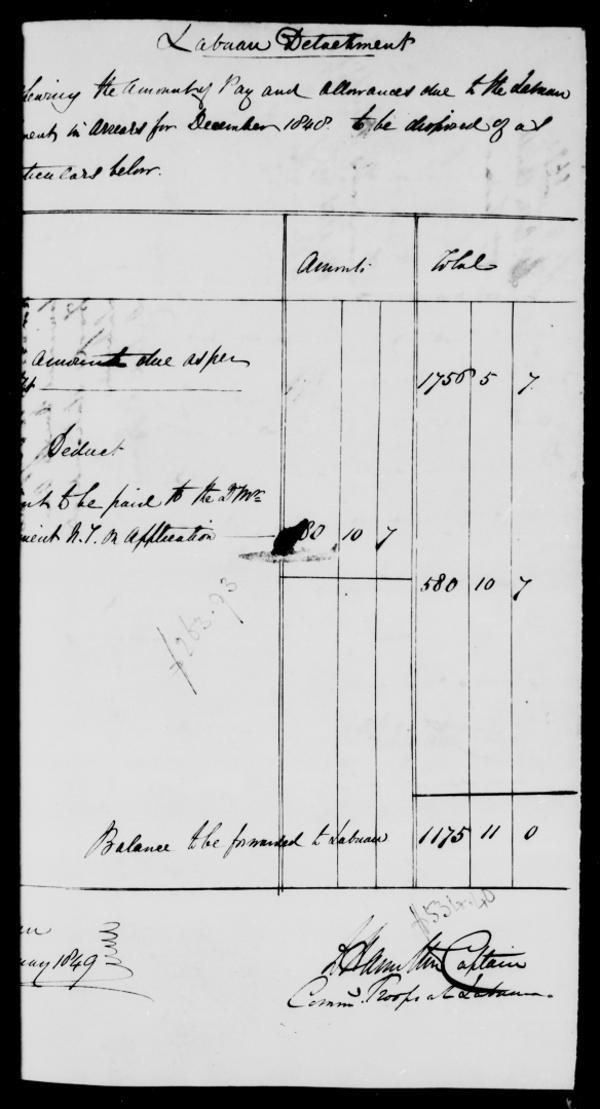 Labuan Detachment
hewing the Amount of Pay and allowances due to the Labuan
ment in Arrears for December 1848. to be disposed of as
ticulars below.
Amount. Total
Amount due as per
1756 5 7
Deduct
nt to be paid to the
ment N.I. on Application 80 10 7
580 10 7
$263.93
Balance to be forwarded to Labuan 1175 11 0
$534.40
uary 1849
Hamilton Captain
Comm. Troops at Labuan.